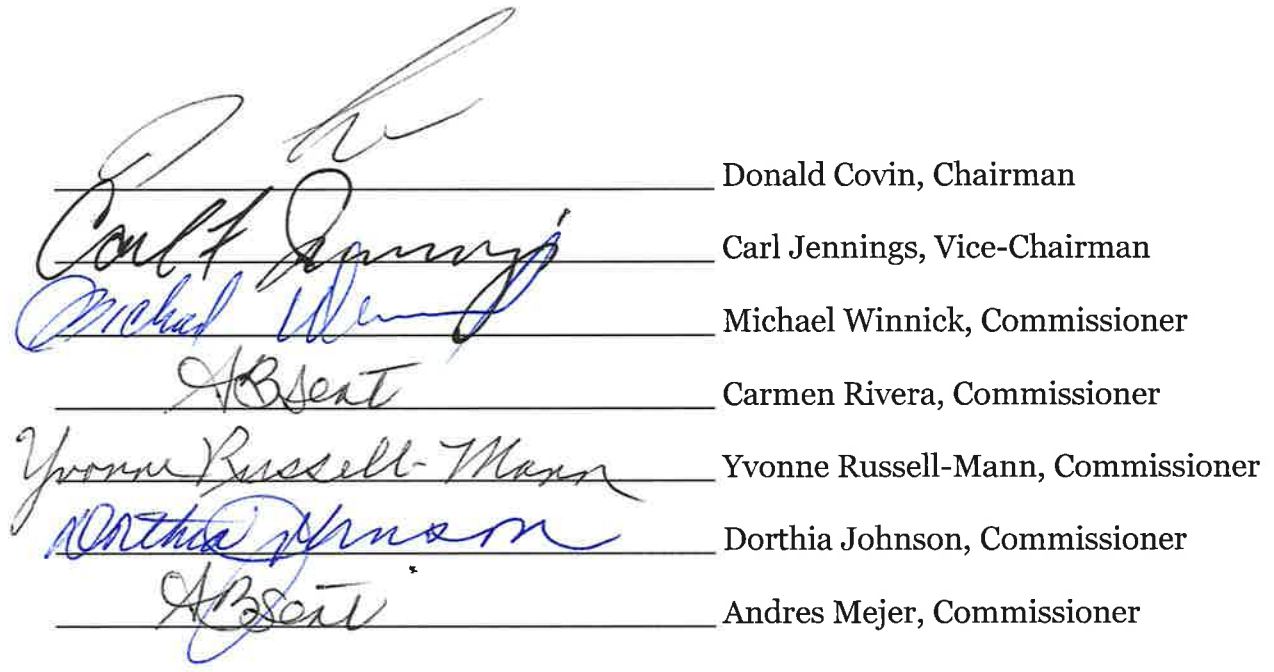 Donald Covin, Chairman
Carl F Jennings Carl Jennings, Vice-Chairman
Michael Winnick, Commissioner
ABsent Carmen Rivera, Commissioner
Yvonne Russell-Mann Yvonne Russell-Mann, Commissioner
Dorthia Johnson Dorthia Johnson, Commissioner
ABsent Andres Mejer, Commissioner